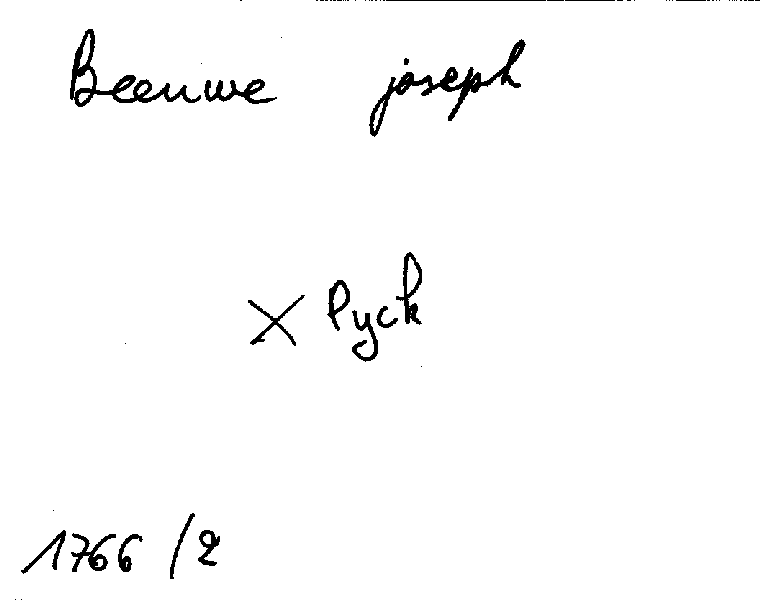 Beeuwe joseph
X Pyck
1766 /2